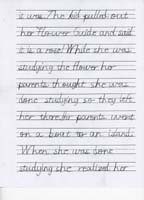 it was. The kid pulled out
her Flower Guide and said
it is a rose! While she was
studying the flower her
parents thought she was
done studying so they left
her there. her parents went
on a boat to an island.
When she was done
studying she realized her